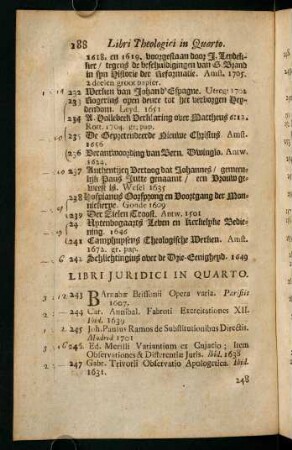 288 Libri Theologici in Quarto.
1618. en 1619. voorgestaan door J. Leydek-
ker / tegens de beschuldigingen van G. Brand
in syn Historie der Reformatie. Amst. 1705.
2 deelen groot papier.
232 Werken van Johan d'Espagne. Utrecht
233 Rogerius open deure tot het verborgen Hey-
dendom. Leyd. 1651
234 A. Hollebeek Verklaring over Mattheus 6:12.
Rott. 1704. gr. pap.
235 De Gepretendeerde Nieuwe Christus. Amst.
1656
236 Verantwoording van Bern. Dwinglo. Antw.
1624.
237 Authentijcq Vertoog dat Johannes / gemeen-
lijk Paus Jutte genaamt / een Vrouw ge-
weest is. Wesel 1635
238 Hospianus Oorsprong en Voortgang der Mon-
nickerye. Goude 1609
239 Der Zielen Troost. Antw. 1501
240 Uytenbogaarts Leven en Kerkelyke Bedie-
ning. 1646
241 Camphuysens Theologische Werken. Amst.
1672. gr. pap.
242 Schlichtingius over de Drie-Eenigheyd. 1649
LIBRI JURIDICI IN QUARTO.
243 Barnabæ Brissonii Opera varia. Parisiis
1607.
244 Car. Annibal. Fabroti Exercitationes XII.
Ibid. 1639
245 Joh. Paulus Ramos de Substitutionibus Directis.
Madrid 1701
246. Ed. Merilli Variantium ex Cujacio; item
Observationes & Differentiæ Juris. Ibid. 1638
247 Gabr. Trivorii Observatio Apologetica. Ibid.
1631.
248